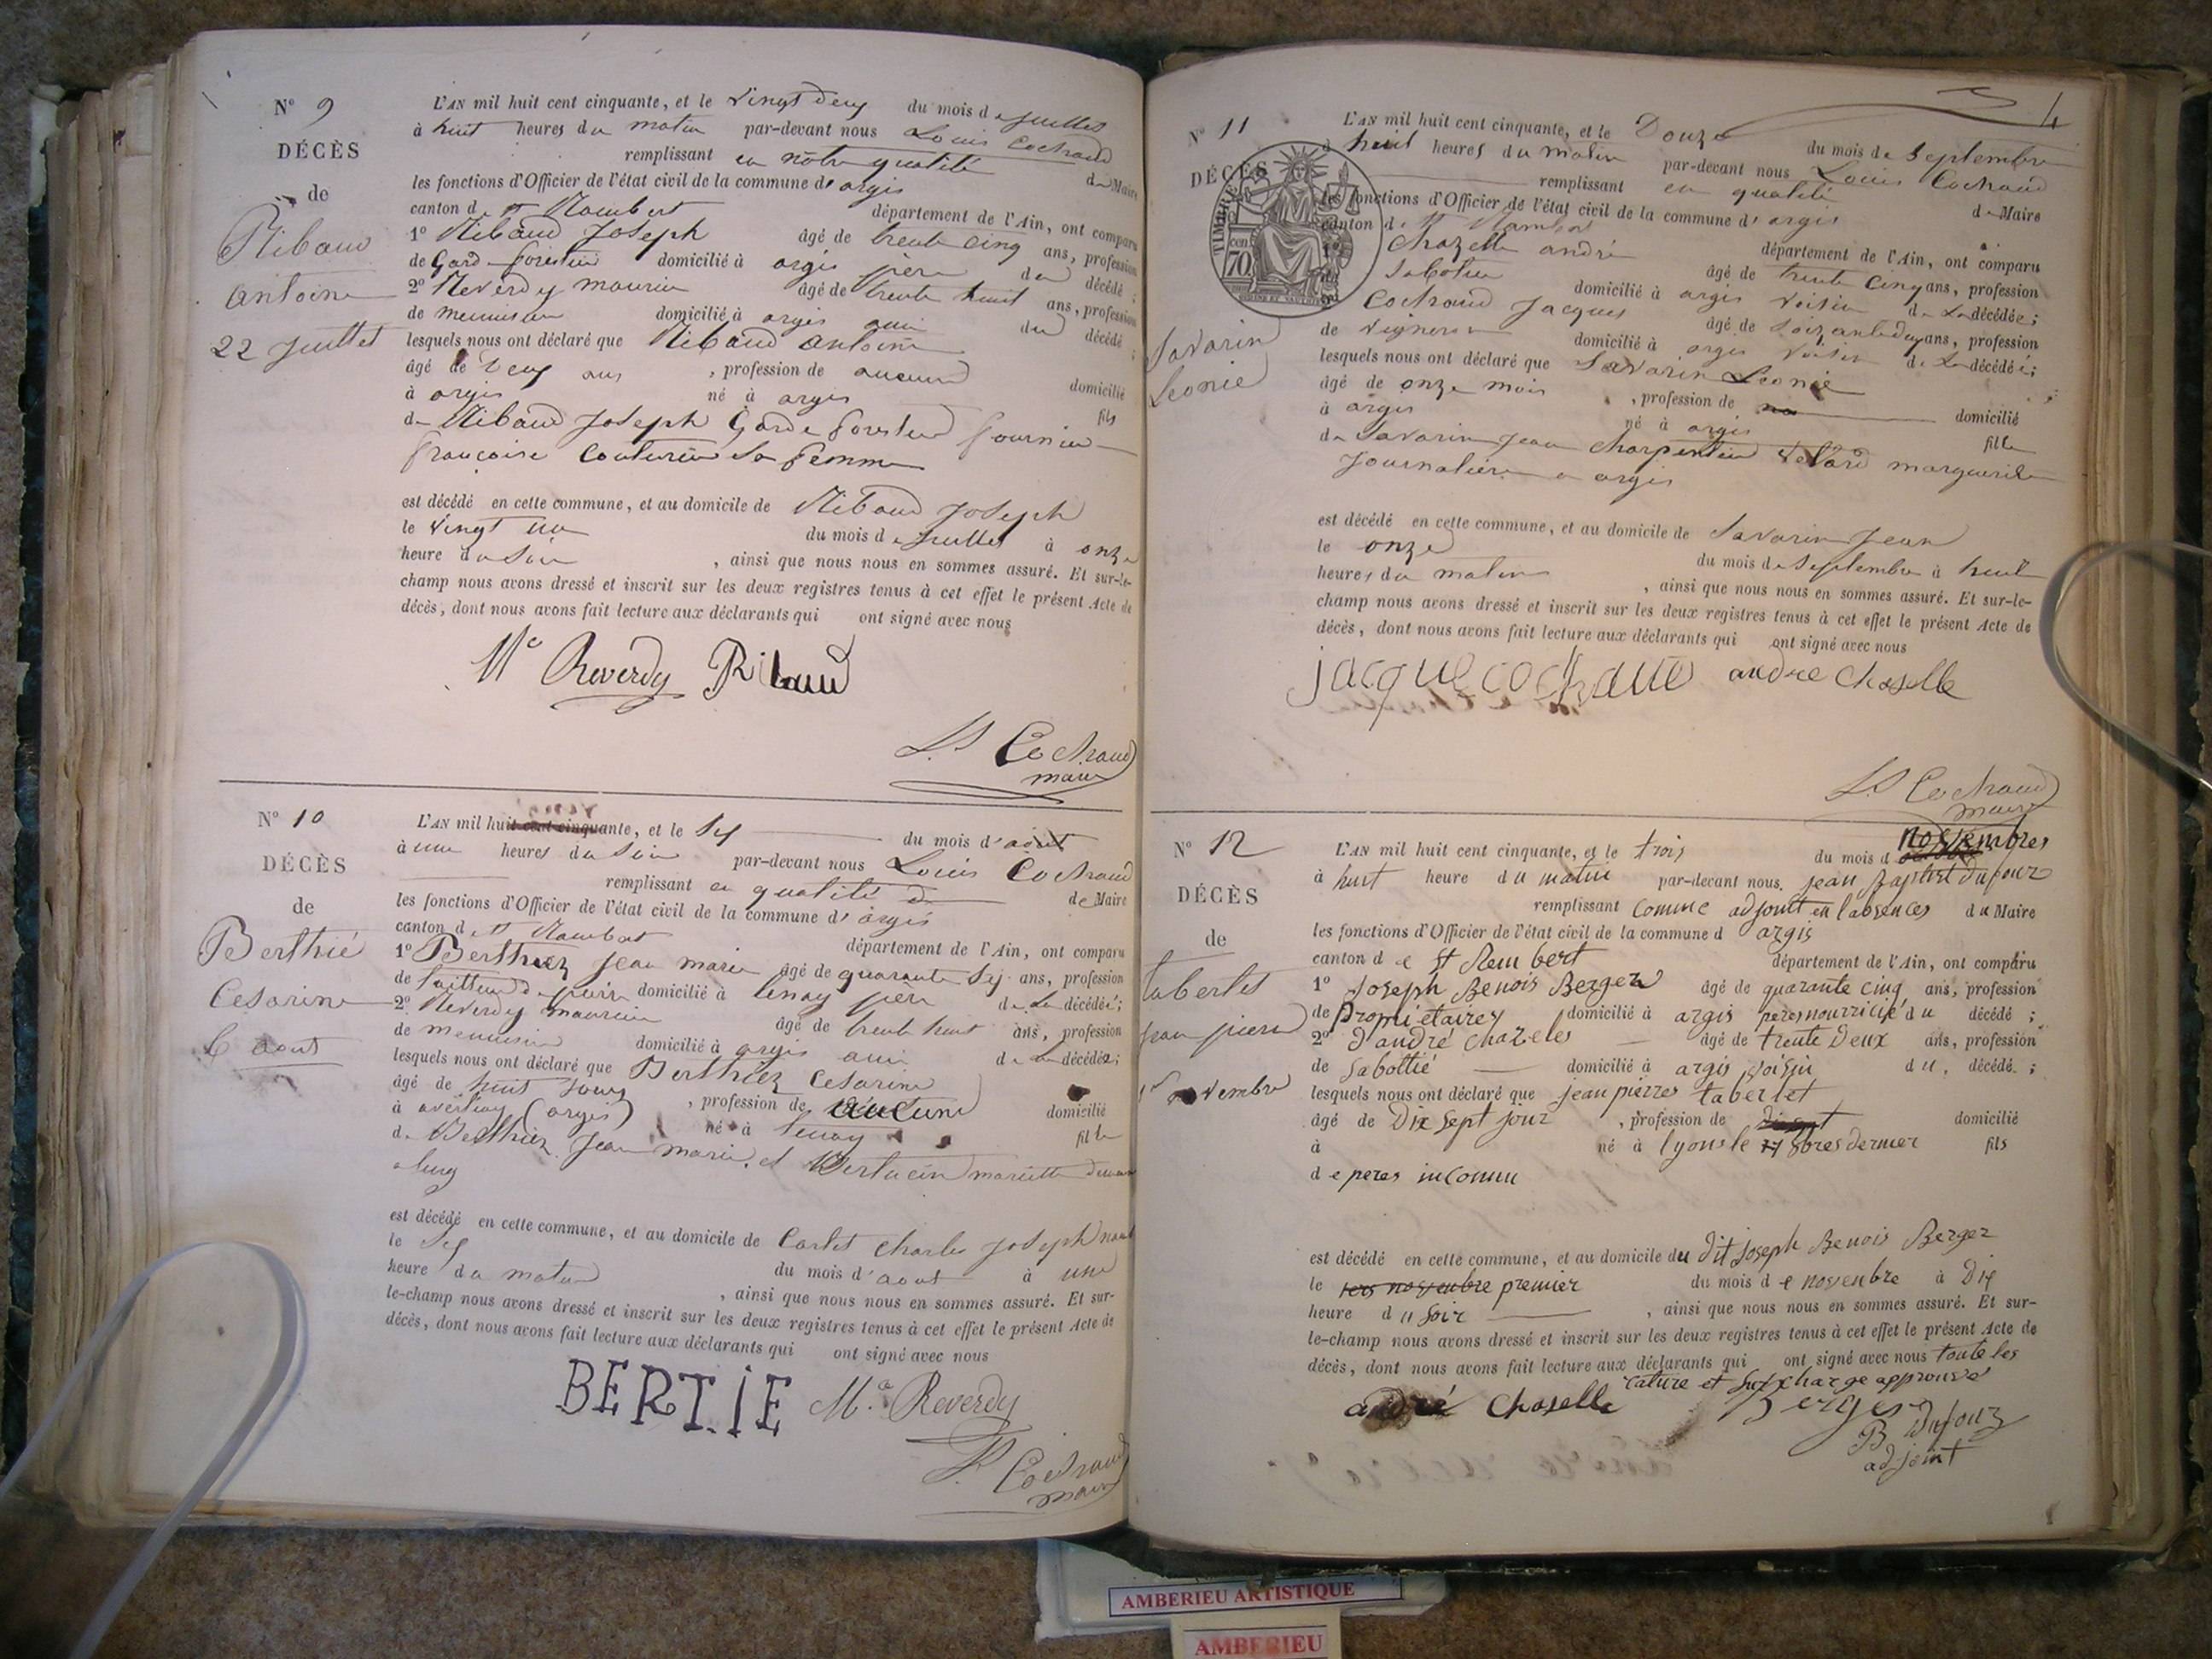 N° 9
DÉCÈS
de
Ribaud
Antoine
22 juillet
L'AN mil huit cent cinquante, et le vingt deux du mois de juillet
à huit heures du matin par-devant nous Louis Cochaud
remplissant en nôtre qualité de Maire
les fonctions d'Officier de l'état civil de la commune d'argis
canton de St Rambert département de l'Ain, ont comparu
1° Ribaud Joseph âgé de trente cinq ans, profession
de Garde forestier domicilié à argis père du décédé ;
2° Reverdy maurice âgé de trente huit ans, profession
de menuisier domicilié à argis ami du décédé ;
lesquels nous ont déclaré que Ribaud antoine
âgé de Deux ans , profession de aucune domicilié
à argis né à argis fils
de Ribaud Joseph Garde forestier fournier
françoise Couturière Sa femme
est décédé en cette commune, et au domicile de Ribaud Joseph
le vingt un du mois de juillet à onze
heure du soir , ainsi que nous nous en sommes assuré. Et sur-le-
champ nous avons dressé et inscrit sur les deux registres tenus à cet effet le présent Acte de
décès, dont nous avons fait lecture aux déclarants qui ont signé avec nous
Mce Reverdy Ribaud
Ls Cochaud
maire
N° 10
DÉCÈS
de
Berthié
Cesarine
6 aout
L'AN mil huit cent cinquante, et le Six du mois d'août
à une heures du Soir par-devant nous Louis Cochaud
remplissant en qualité de Maire
les fonctions d'Officier de l'état civil de la commune d'argis
canton de St Rambert département de l'Ain, ont comparu
1° Berthiez Jean marie âgé de quarante Six ans, profession
de tailleur de pierre domicilié à tenay père de La décédée ;
2° Reverdy maurice âgé de trente huit ans, profession
de menuisier domicilié à argis ami de La décédée ;
lesquels nous ont déclaré que Berthiez Cesarine
âgé de huit jours , profession de aucune domicilié
à (argis) né à tenay fille
de Berthiez Jean marie et mariette
est décédé en cette commune, et au domicile de Carlet Charles Joseph
le Six du mois d'aout à une
heure du matin , ainsi que nous nous en sommes assuré. Et sur-
le-champ nous avons dressé et inscrit sur les deux registres tenus à cet effet le présent Acte de
décès, dont nous avons fait lecture aux déclarants qui ont signé avec nous
BERTIE Mce Reverdy
Ls Cochaud
maire
4
N° 11
DÉCÈS
TIMBRE
70 cen
Savarin
Leonie
L'AN mil huit cent cinquante, et le Douze du mois de Septembre
à huit heures du matin par-devant nous Louis Cochaud
remplissant en qualité de Maire
les fonctions d'Officier de l'état civil de la commune d'argis
canton de St Rambert département de l'Ain, ont comparu
Chazelle andré âgé de trente cinq ans, profession
Sabotier domicilié à argis voisin de La décédée ;
Cochaud Jacques âgé de Soixante deux ans, profession
de vigneron domicilié à argis voisin de La décédée ;
lesquels nous ont déclaré que Savarin Leonie
âgé de onze mois , profession de domicilié
à argis né à argis fille
de Savarin Jean Charpentier marguerite
Journalière a argis
est décédé en cette commune, et au domicile de Savarin Jean
le onze du mois de Septembre à huit
heures du matin , ainsi que nous nous en sommes assuré. Et sur-le-
champ nous avons dressé et inscrit sur les deux registres tenus à cet effet le présent Acte de
décès, dont nous avons fait lecture aux déclarants qui ont signé avec nous
jacque cochaud andre chaselle
Ls Cochaud
maire
N° 12
DÉCÈS
de
tabertet
jean pierre
1er novembre
L'AN mil huit cent cinquante, et le trois du mois d novembres
à huit heure du matin par-devant nous jean Baptist dufour
remplissant comme adjoint en l'absences du Maire
les fonctions d'Officier de l'état civil de la commune d argis
canton de St Rembert département de l'Ain, ont comparu
1° joseph Benois Berger âgé de quarante cinq ans, profession
de propriétaires domicilié à argis peres nourricié du décédé ;
2° d'andré chazeles âgé de trente Deux ans, profession
de Sabottié domicilié à argis voisin du décédé ;
lesquels nous ont déclaré que jean pierres tabertet
âgé de Dix sept jour , profession de domicilié
à né à lyons le 17 8bres dernier fils
de peres inconnu
est décédé en cette commune, et au domicile du dit joseph Benois Berger
le premier du mois de novenbre à Dix
heure du soir , ainsi que nous nous en sommes assuré. Et sur-
le-champ nous avons dressé et inscrit sur les deux registres tenus à cet effet le présent Acte de
décès, dont nous avons fait lecture aux déclarants qui ont signé avec nous toute les
rature et surcharge approuvé
andré chaselle Berger
B Dufour
adjoint
AMBERIEU ARTISTIQUE
AMBERIEU